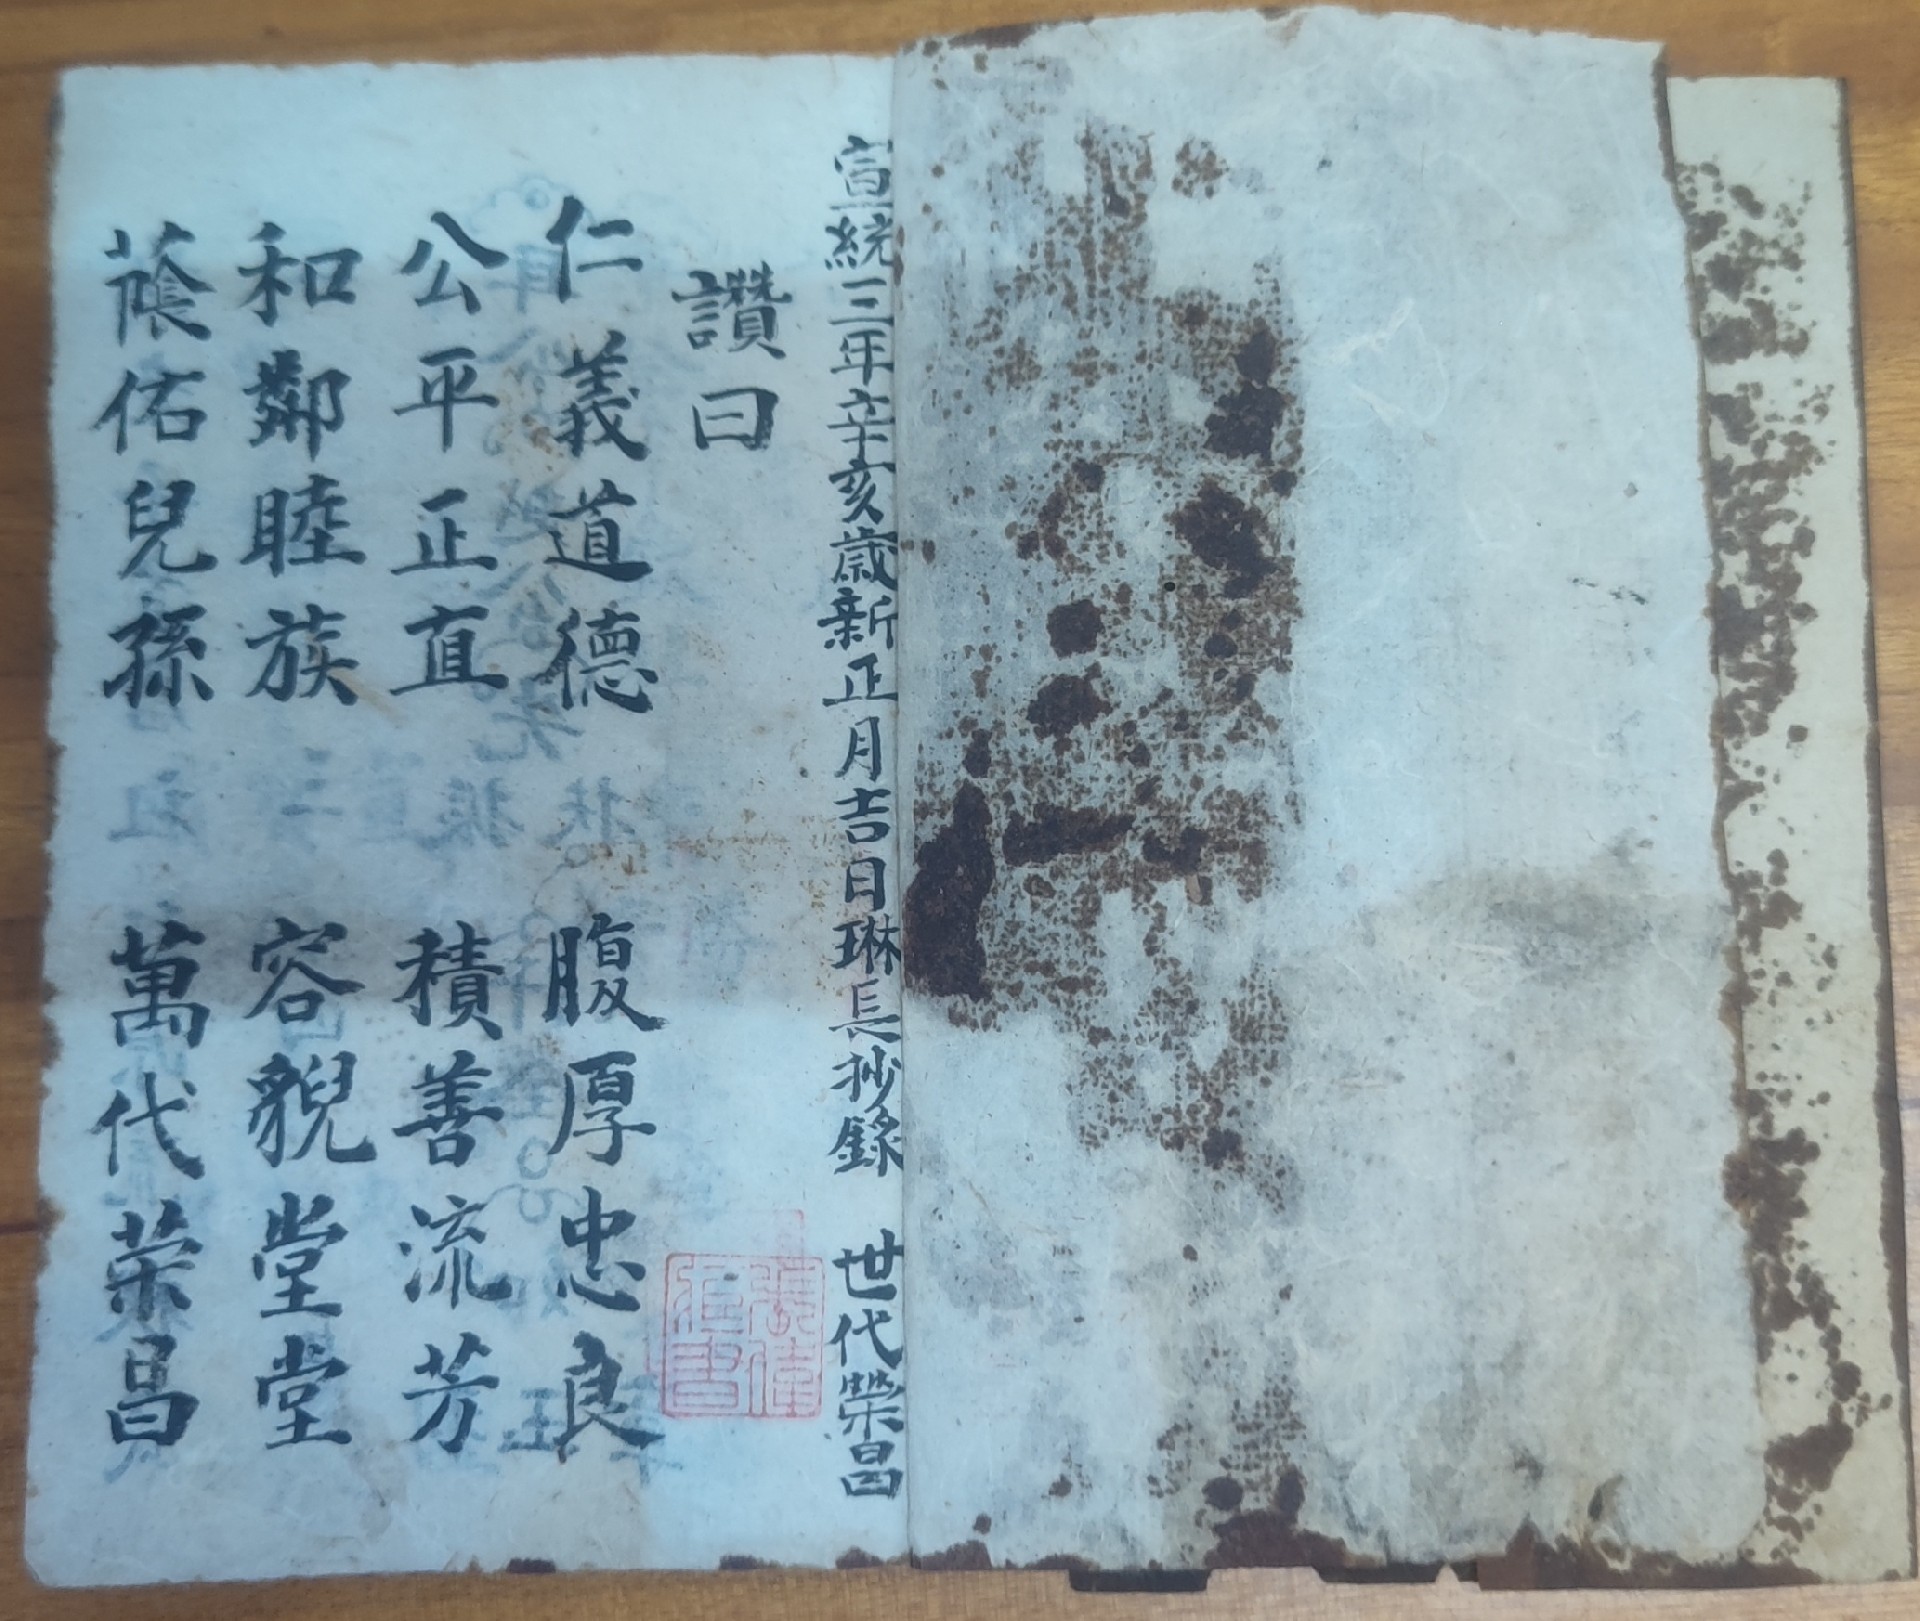 宣統三年辛亥歲新正月吉日琳長抄錄 世代榮昌
讚曰
仁義道德 腹厚忠良
公平正直 積善流芳
和鄰睦族 容貌堂堂
蔭佑兒孫 萬代荣昌